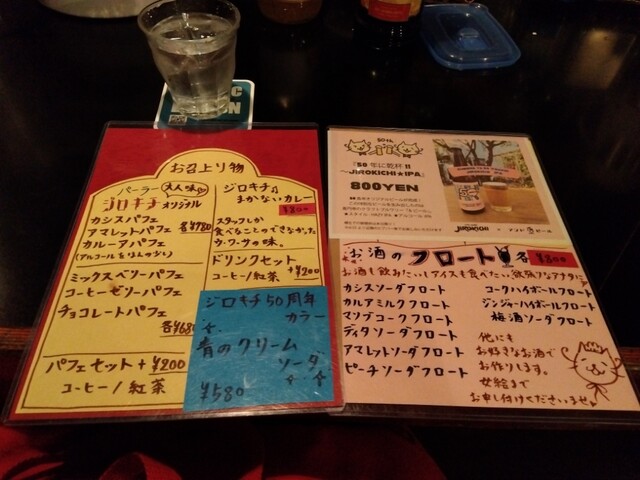 お召上り物
パーラー 大人味
ジロキチ オリジナル
カシスパフェ
アマレットパフェ 各¥780
カルーアパフェ
(アルコールをほんの少し)
ミックスベリーパフェ
コーヒーゼリーパフェ
チョコレートパフェ
各¥680
パフェセット+¥200
コーヒー/紅茶
ジロキチ♫
まかないカレー
¥800
スタッフしか
食べることのできなかった
ウ・ワ・サの味。
ドリンクセット
コーヒー/紅茶 +¥200
ジロキチ50周年
カラー
青のクリーム
ソーダ
¥580
50th
『50年に乾杯!!
〜JIROKICHI★IPA』
800YEN
お酒のフロート 各 ¥800
お酒も飲みたいしアイスも食べたい欲張りなアナタに
カシスソーダフロート
カルアミルクフロート
マリブコークフロート
ディタソーダフロート
アマレットソーダフロート
ピーチソーダフロート
コークハイボールフロート
ジンジャーハイボールフロート
梅酒ソーダフロート
他にも
お好きなお酒で
お作りします。
女給まで
お申し付けくださいませ♥